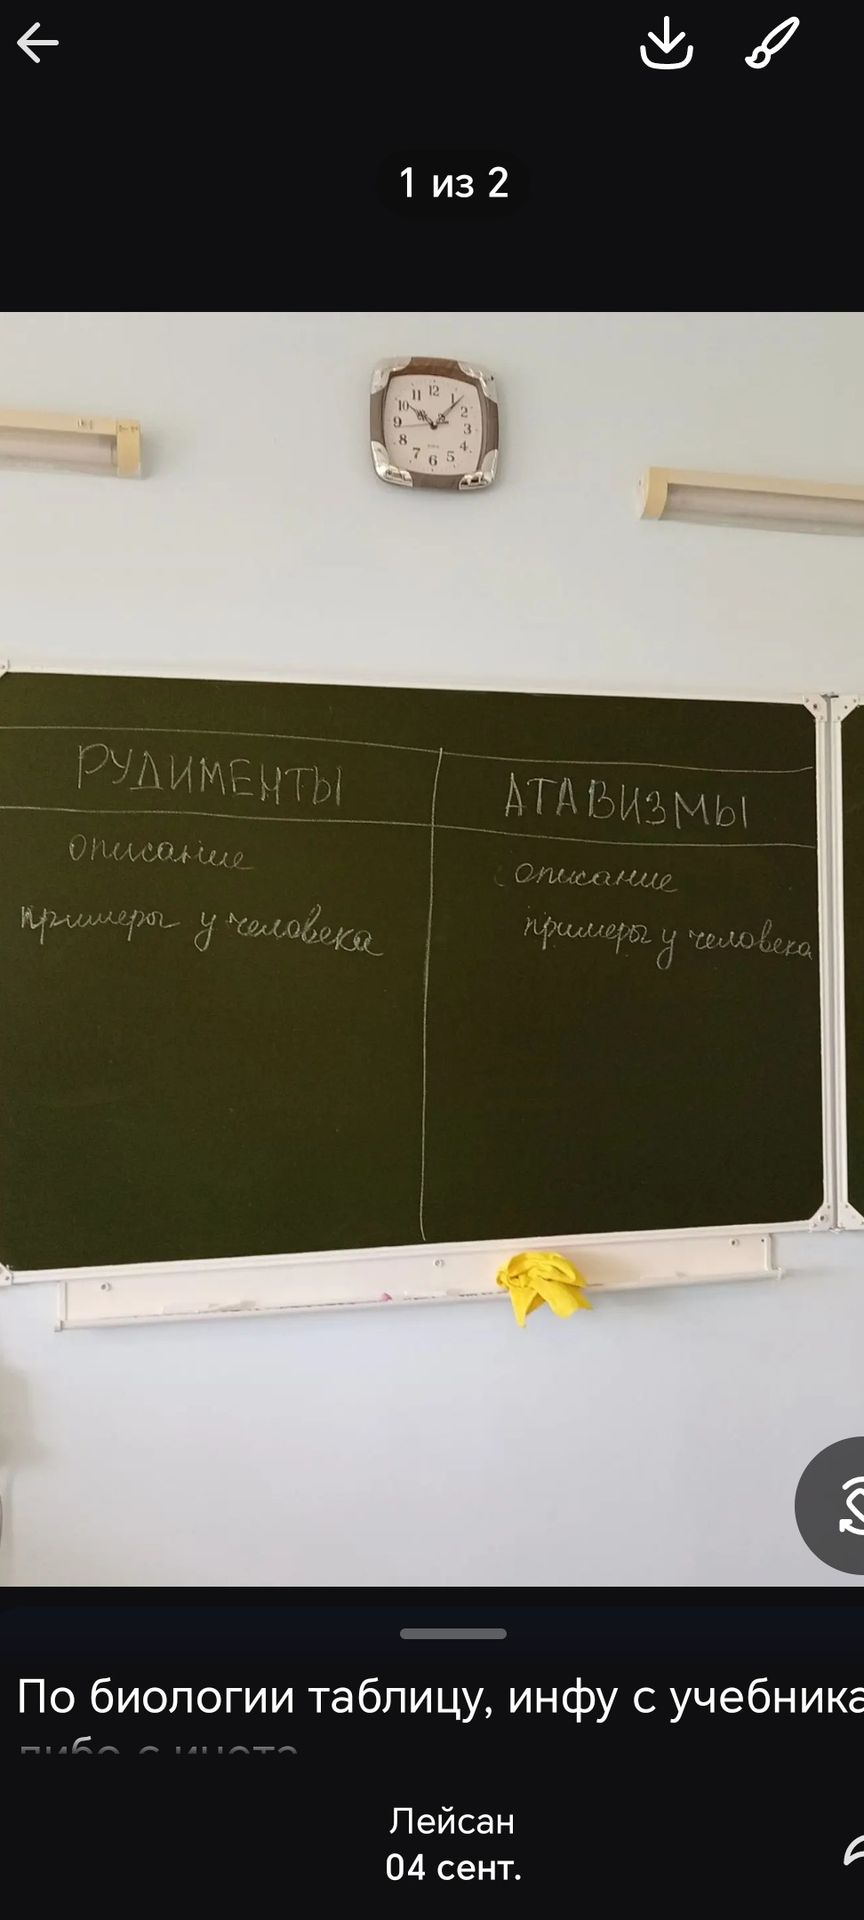 1 из 2
12
11
1
10
2
9
3
8
4
7
6
5
РУДИМЕНТЫ
АТАВИЗМЫ
описание
описание
примеры у человека
примеры у человека
По биологии таблицу, инфу с учебника
либо с инета
Лейсан
04 сент.